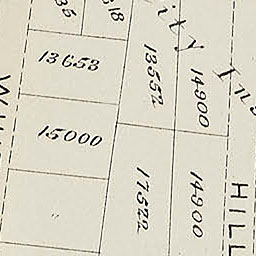 35
318
ity Ins
13653
13552
14900
15000
17522
14900
"
HILL